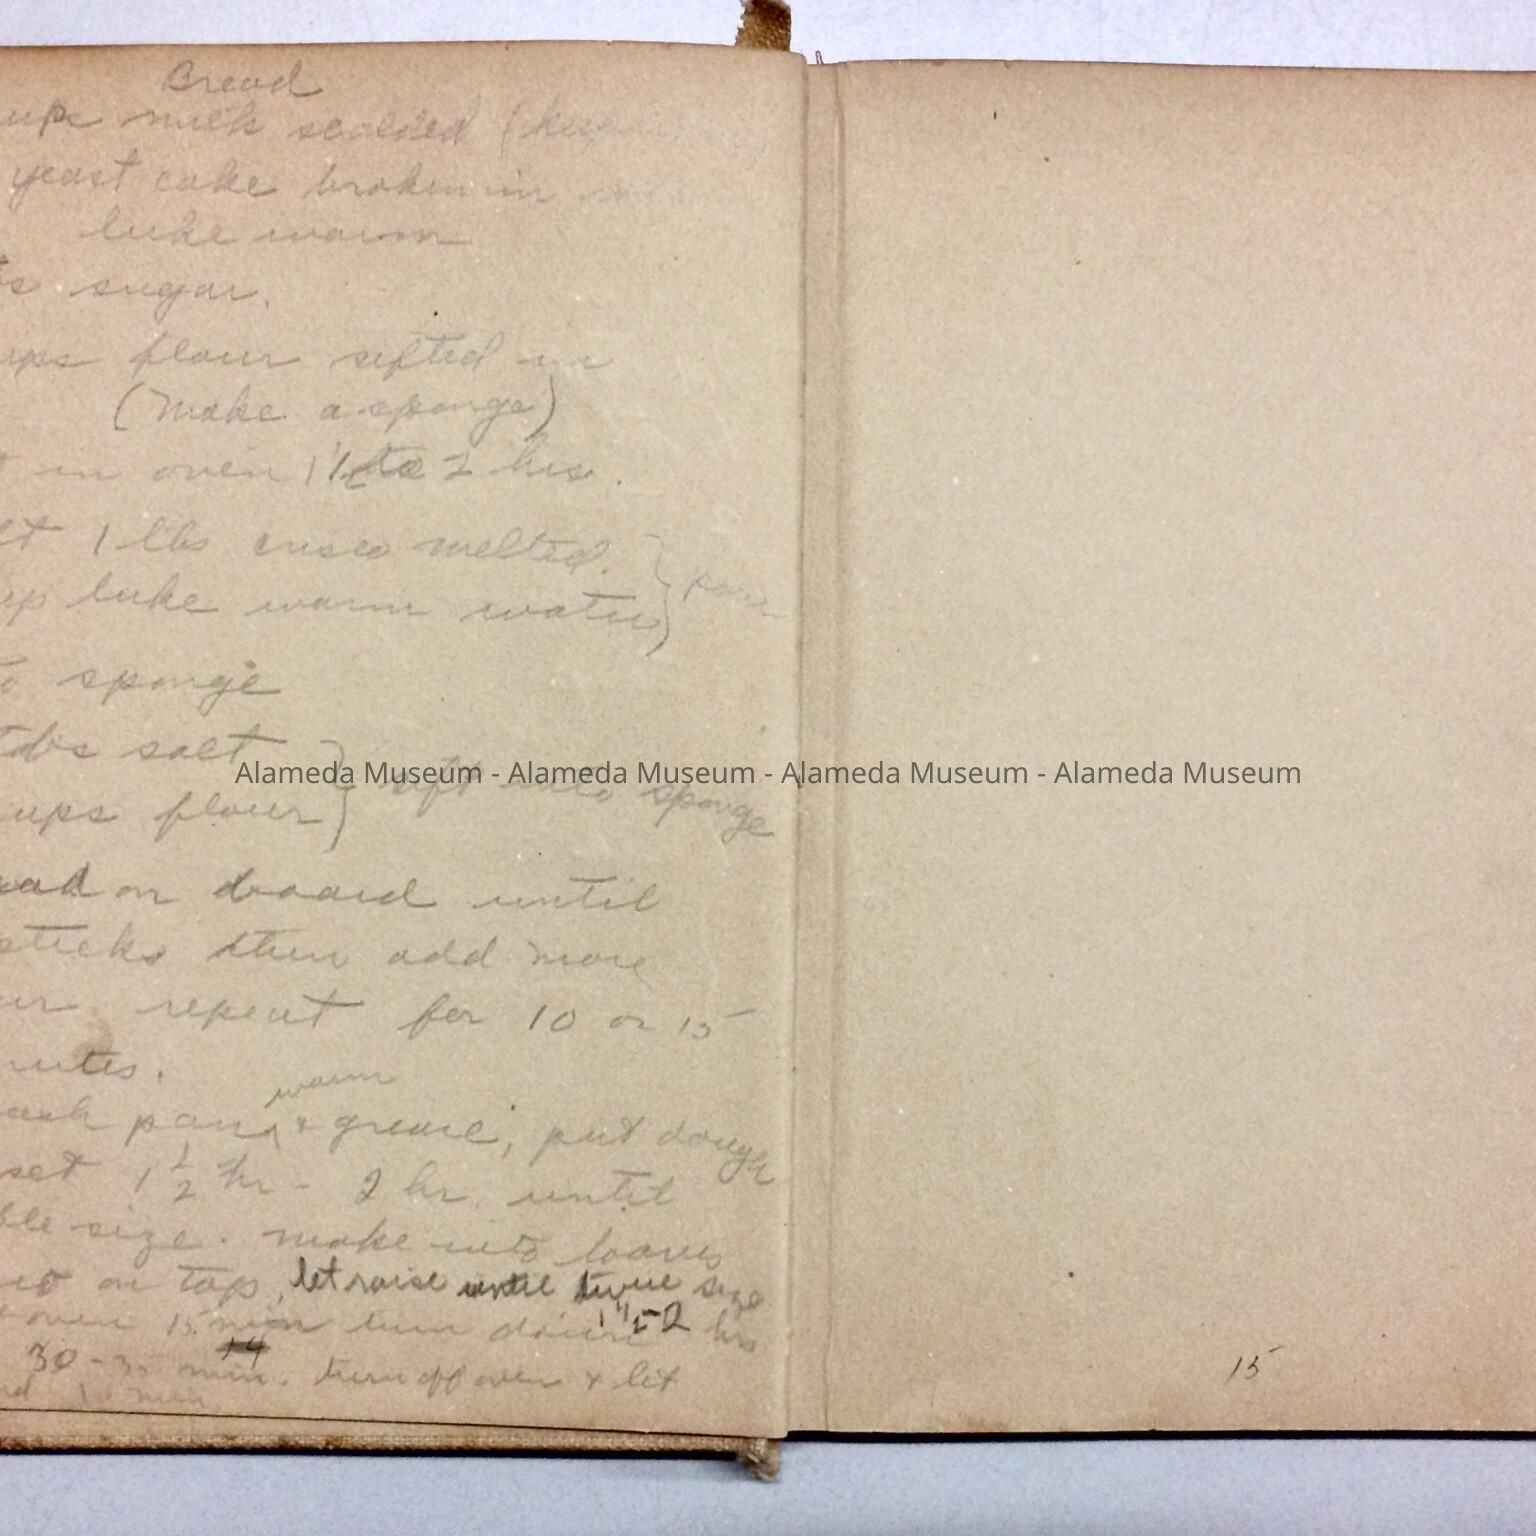 Bread
ups milk scalded (keep
yeast cake broken in
luke warm
ts sugar.
ups flour sifted in
(make a sponge)
t in oven 1 1/2 to 2 hrs.
1 tbs crisco melted. } pour
up luke warm water }
to sponge
tbs salt } sift into sponge
ups flour }
Alameda Museum - Alameda Museum - Alameda Museum - Alameda Museum
ead on board until
sticks then add more
ur repeat for 10 or 15
nutes.
warm
pans & grease, put dough
set 1 1/2 hr - 2 hr. until
ble size. make into loaves
on top, let raise until twice size
1 1/2 - 2 hrs
oven 15 min turn down
14
30 - 35 min. turn off oven & let
min.
15